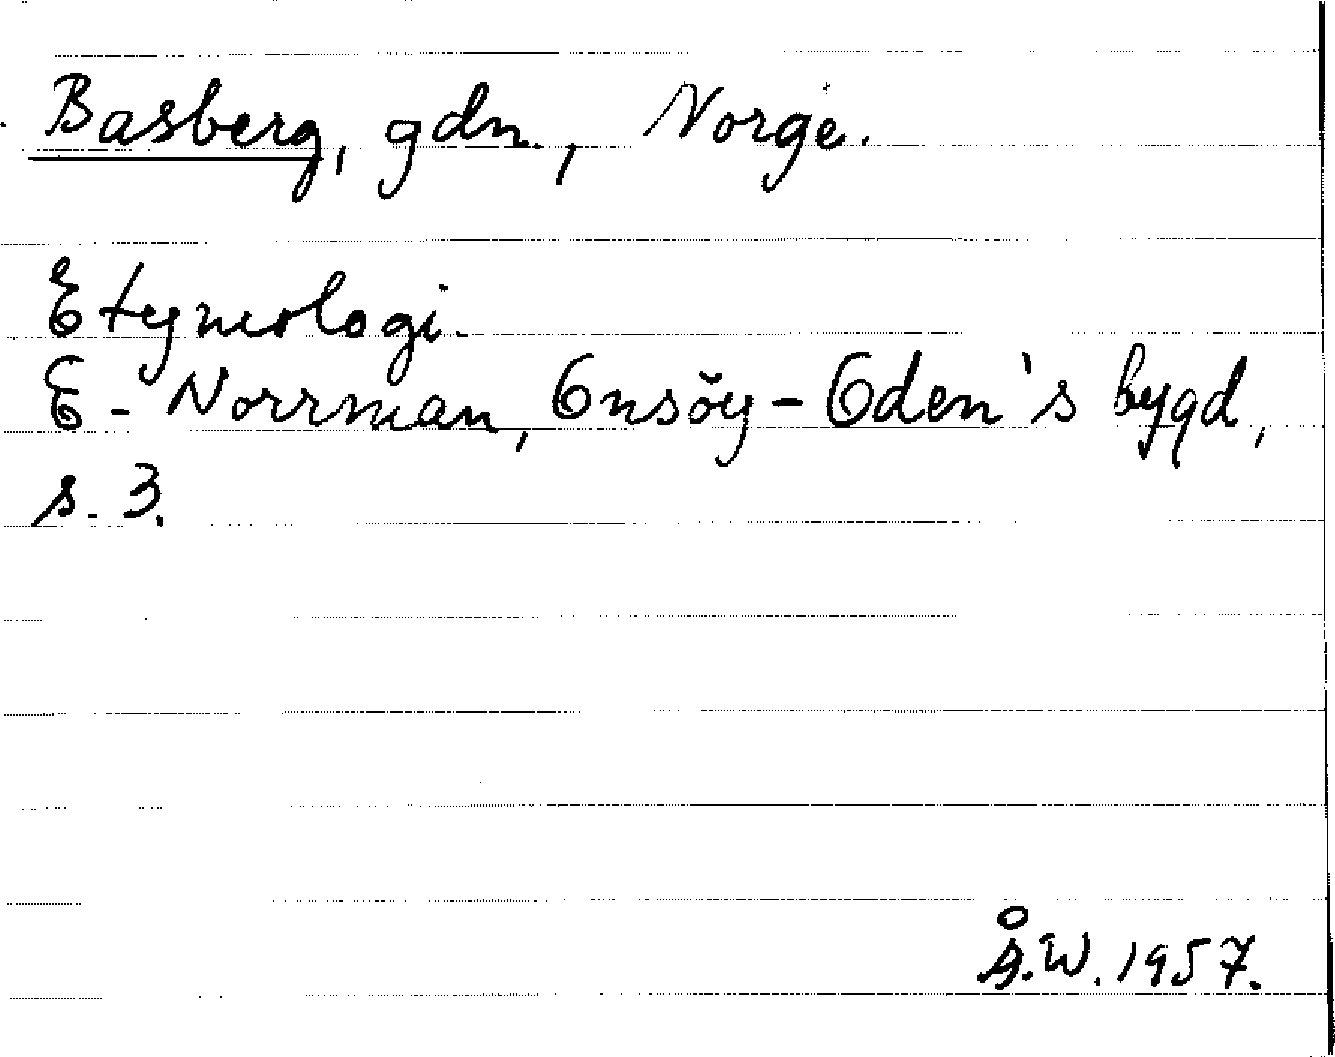 Basberg, gdn., Norge.
Etymologi.
E. Norrman, Onsöy - Oden's bygd,
s. 3.
Å.W. 1957.